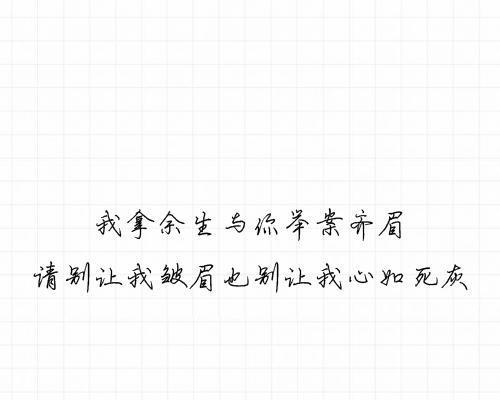 我拿余生与你举案齐眉
请别让我皱眉也别让我心如死灰